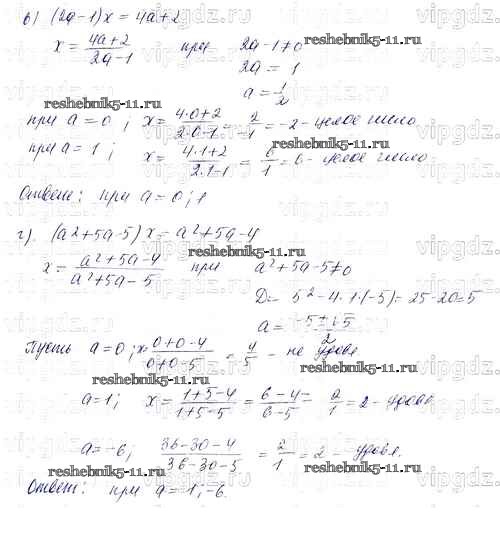 в) (2a-1)x = 4a+2
x = (4a+2)/(2a-1) при 2a-1≠0
2a = 1
a = 1/2
reshebnik5-11.ru
при a = 0; x = (4·0+2)/(2·0-1) = 2/-1 = -2 - целое число
при a = 1; x = (4·1+2)/(2·1-1) = 6/1 = 6 - целое число
Ответ: при a = 0; 1
г). (a²+5a-5)x = a²+5a-4
x = (a²+5a-4)/(a²+5a-5) при a²+5a-5≠0
D = 5²-4·1·(-5) = 25-20=5
a = (-5±√5)/2
Пусть a=0; x = (0+0-4)/(0+0-5) = 4/5 - не удовл
a=1; x = (1+5-4)/(1+5-5) = (6-4)/(6-5) = 2/1 = 2 - удовл
a=-6; (36-30-4)/(36-30-5) = 2/1 = 2 - удовл.
Ответ: при a = 1; -6.
reshebnik5-11.ru
vipgdz.com